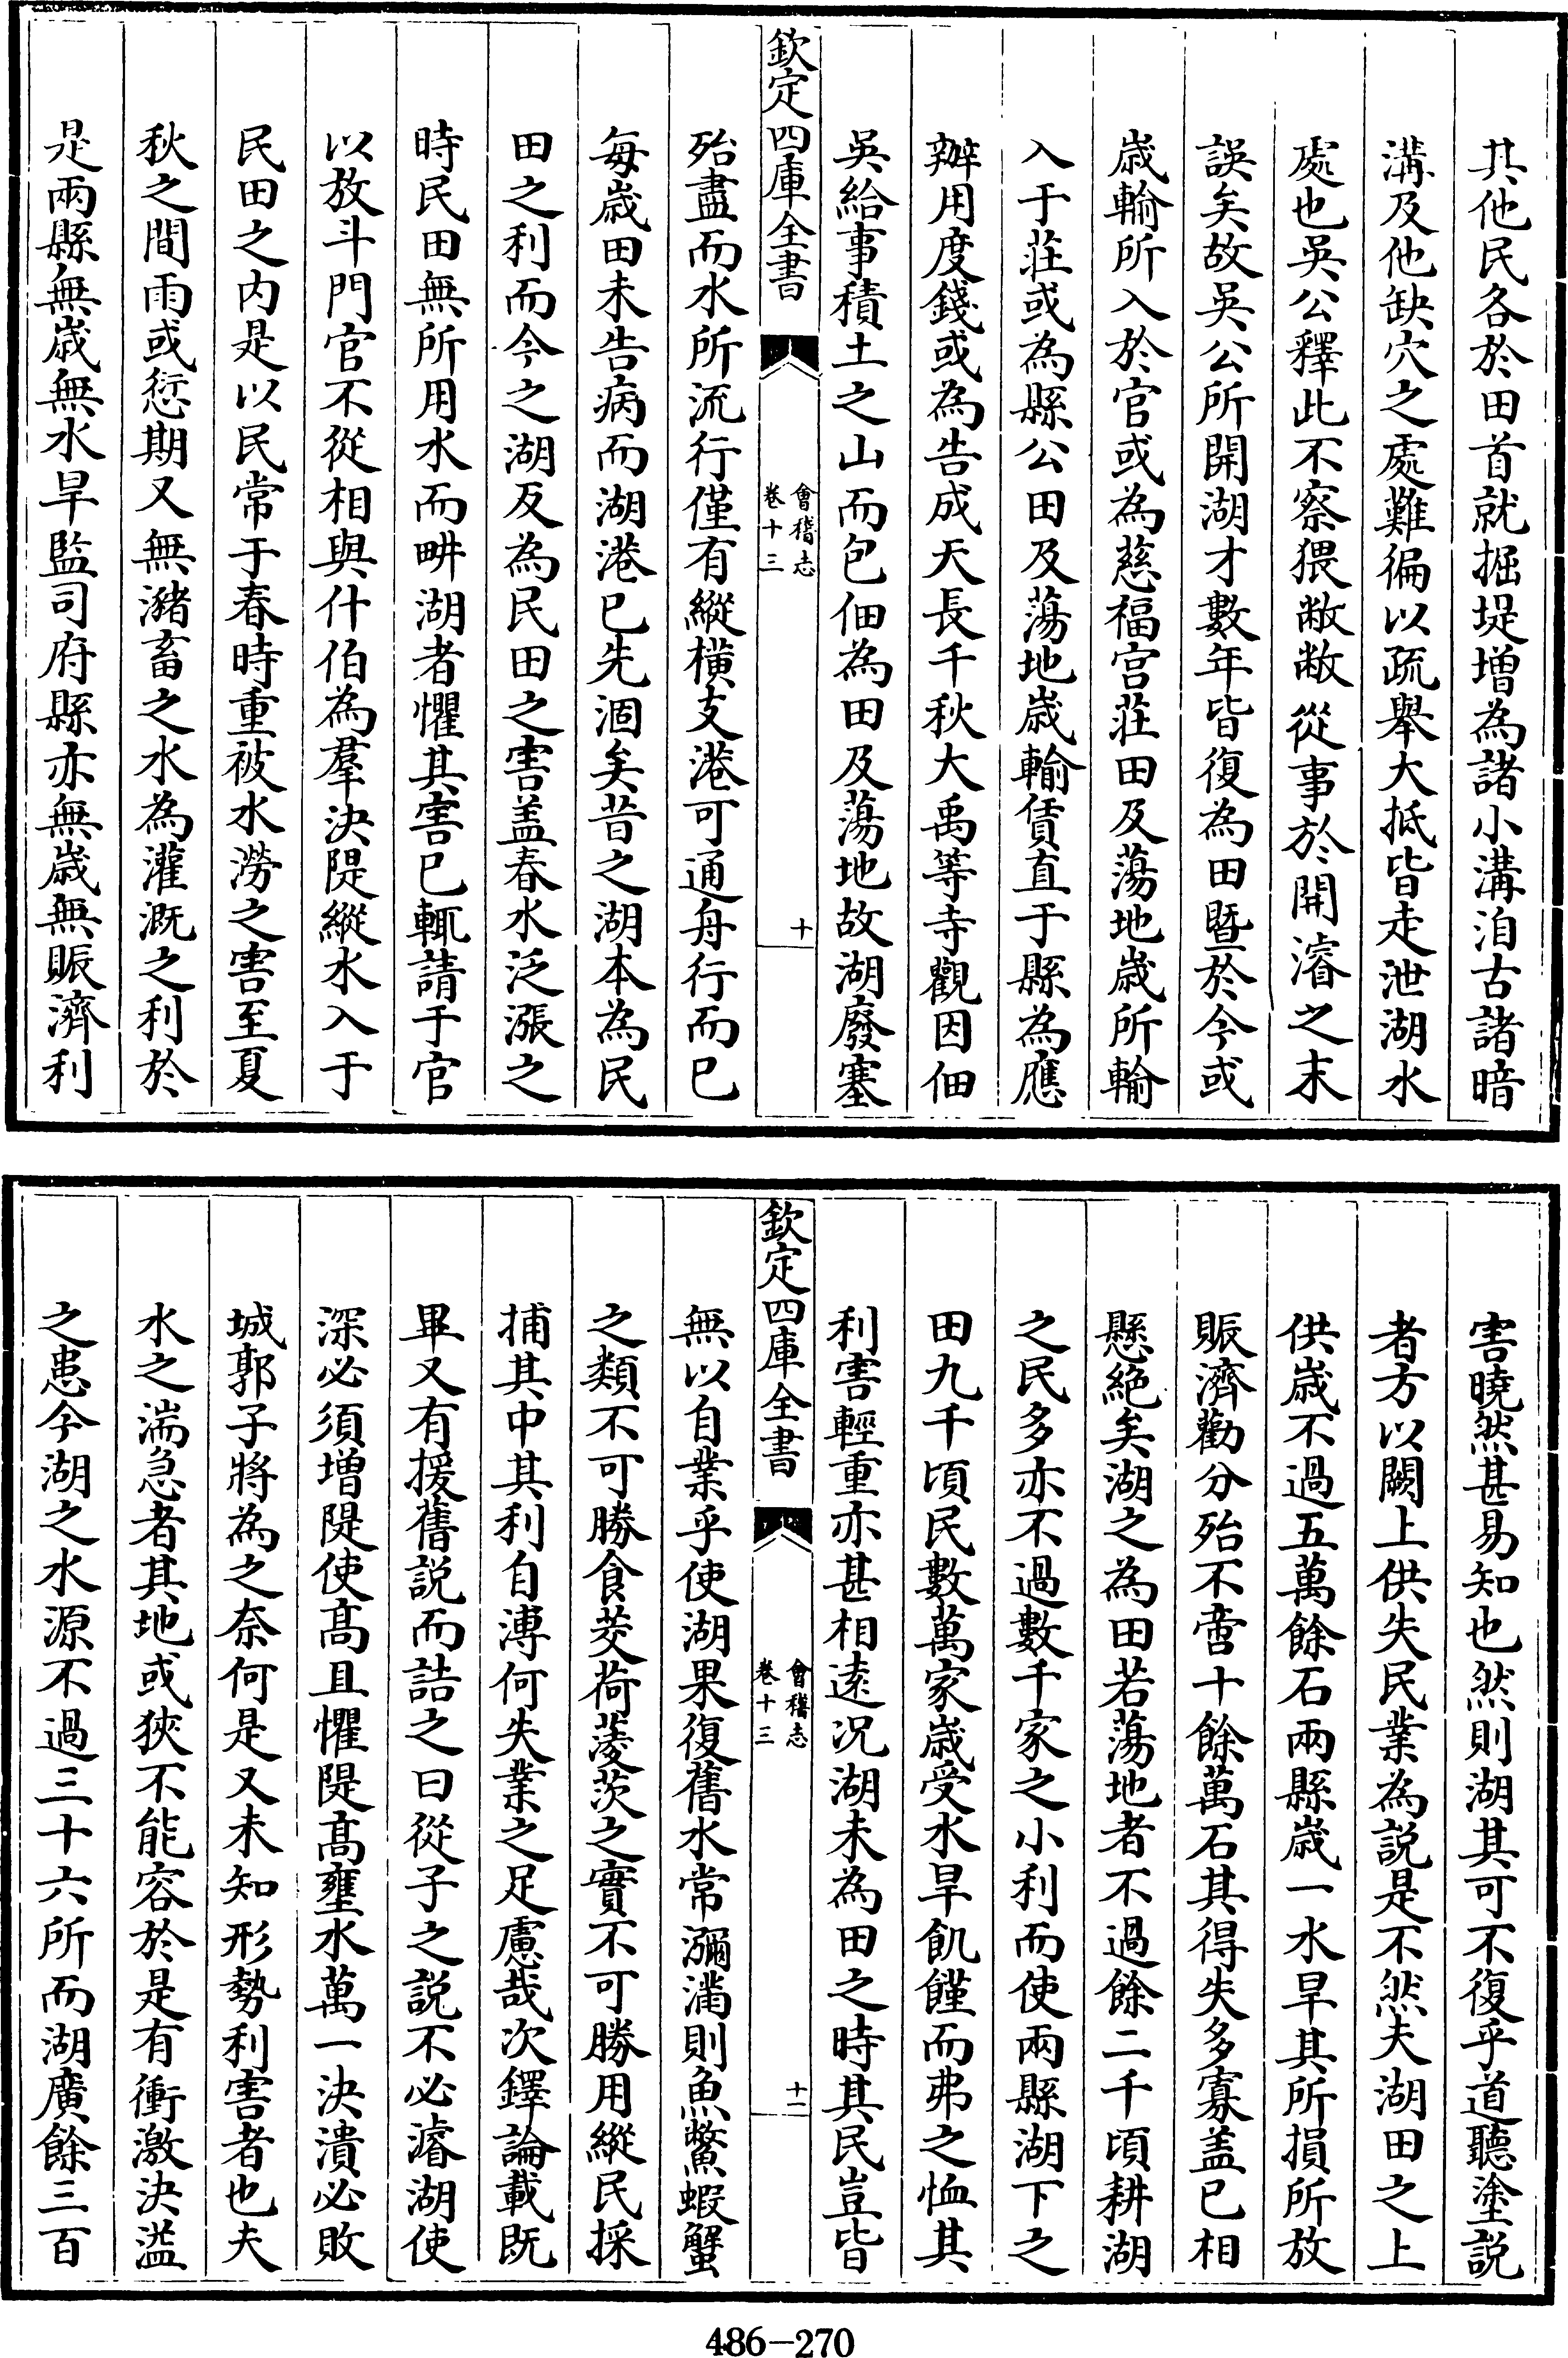 其他民各於田首就掘堤增為諸小溝洎古諸暗
溝及他缺穴之處難徧以疏舉大抵皆走泄湖水
處也吳公釋此不察猥敝敝從事於開濬之末
誤矣故吳公所開湖才數年皆復為田暨於今或
歳輸所入於官或為慈福宫莊田及蕩地歳所輸
入于莊或為縣公田及蕩地歳輸賃直于縣為應
辦用度錢或為告成天長千秋大禹等寺觀因佃
吳給事積土之山而包佃為田及蕩地故湖廢塞
欽定四庫全書
會稽志
卷十三
十
殆盡而水所流行僅有縱橫支港可通舟行而已
每歳田未告病而湖港已先涸矣昔之湖本為民
田之利而今之湖反為民田之害盖春水泛漲之
時民田無所用水而畊湖者懼其害已輒請于官
以放斗門官不從相與什伯為羣決隄縱水入于
民田之内是以民常于春時重被水澇之害至夏
秋之間雨或愆期又無瀦畜之水為灌溉之利於
是兩縣無歳無水旱監司府縣亦無歳無賑濟利
害曉然甚易知也然則湖其可不復乎道聽塗説
者方以闕上供失民業為説是不然夫湖田之上
供歳不過五萬餘石兩縣歳一水旱其所損所放
賑濟勸分殆不啻十餘萬石其得失多寡盖已相
懸絶矣湖之為田若蕩地者不過餘二千頃耕湖
之民多亦不過數千家之小利而使兩縣湖下之
田九千頃民數萬家歳受水旱飢饉而弗之恤其
利害輕重亦甚相逺况湖未為田之時其民豈皆
欽定四庫全書
會稽志
卷十三
十一
無以自業乎使湖果復舊水常瀰滿則魚鱉蝦蟹
之類不可勝食茭荷菱茨之實不可勝用縱民採
捕其中其利自溥何失業之足慮哉次鐸論載既
畢又有援舊説而詰之曰從子之説不必濬湖使
深必須增隄使髙且懼隄髙壅水萬一決潰必敗
城郭子將為之奈何是又未知形勢利害者也夫
水之湍急者其地或狹不能容於是有衝激決溢
之患今湖之水源不過三十六所而湖廣餘三百
486-270